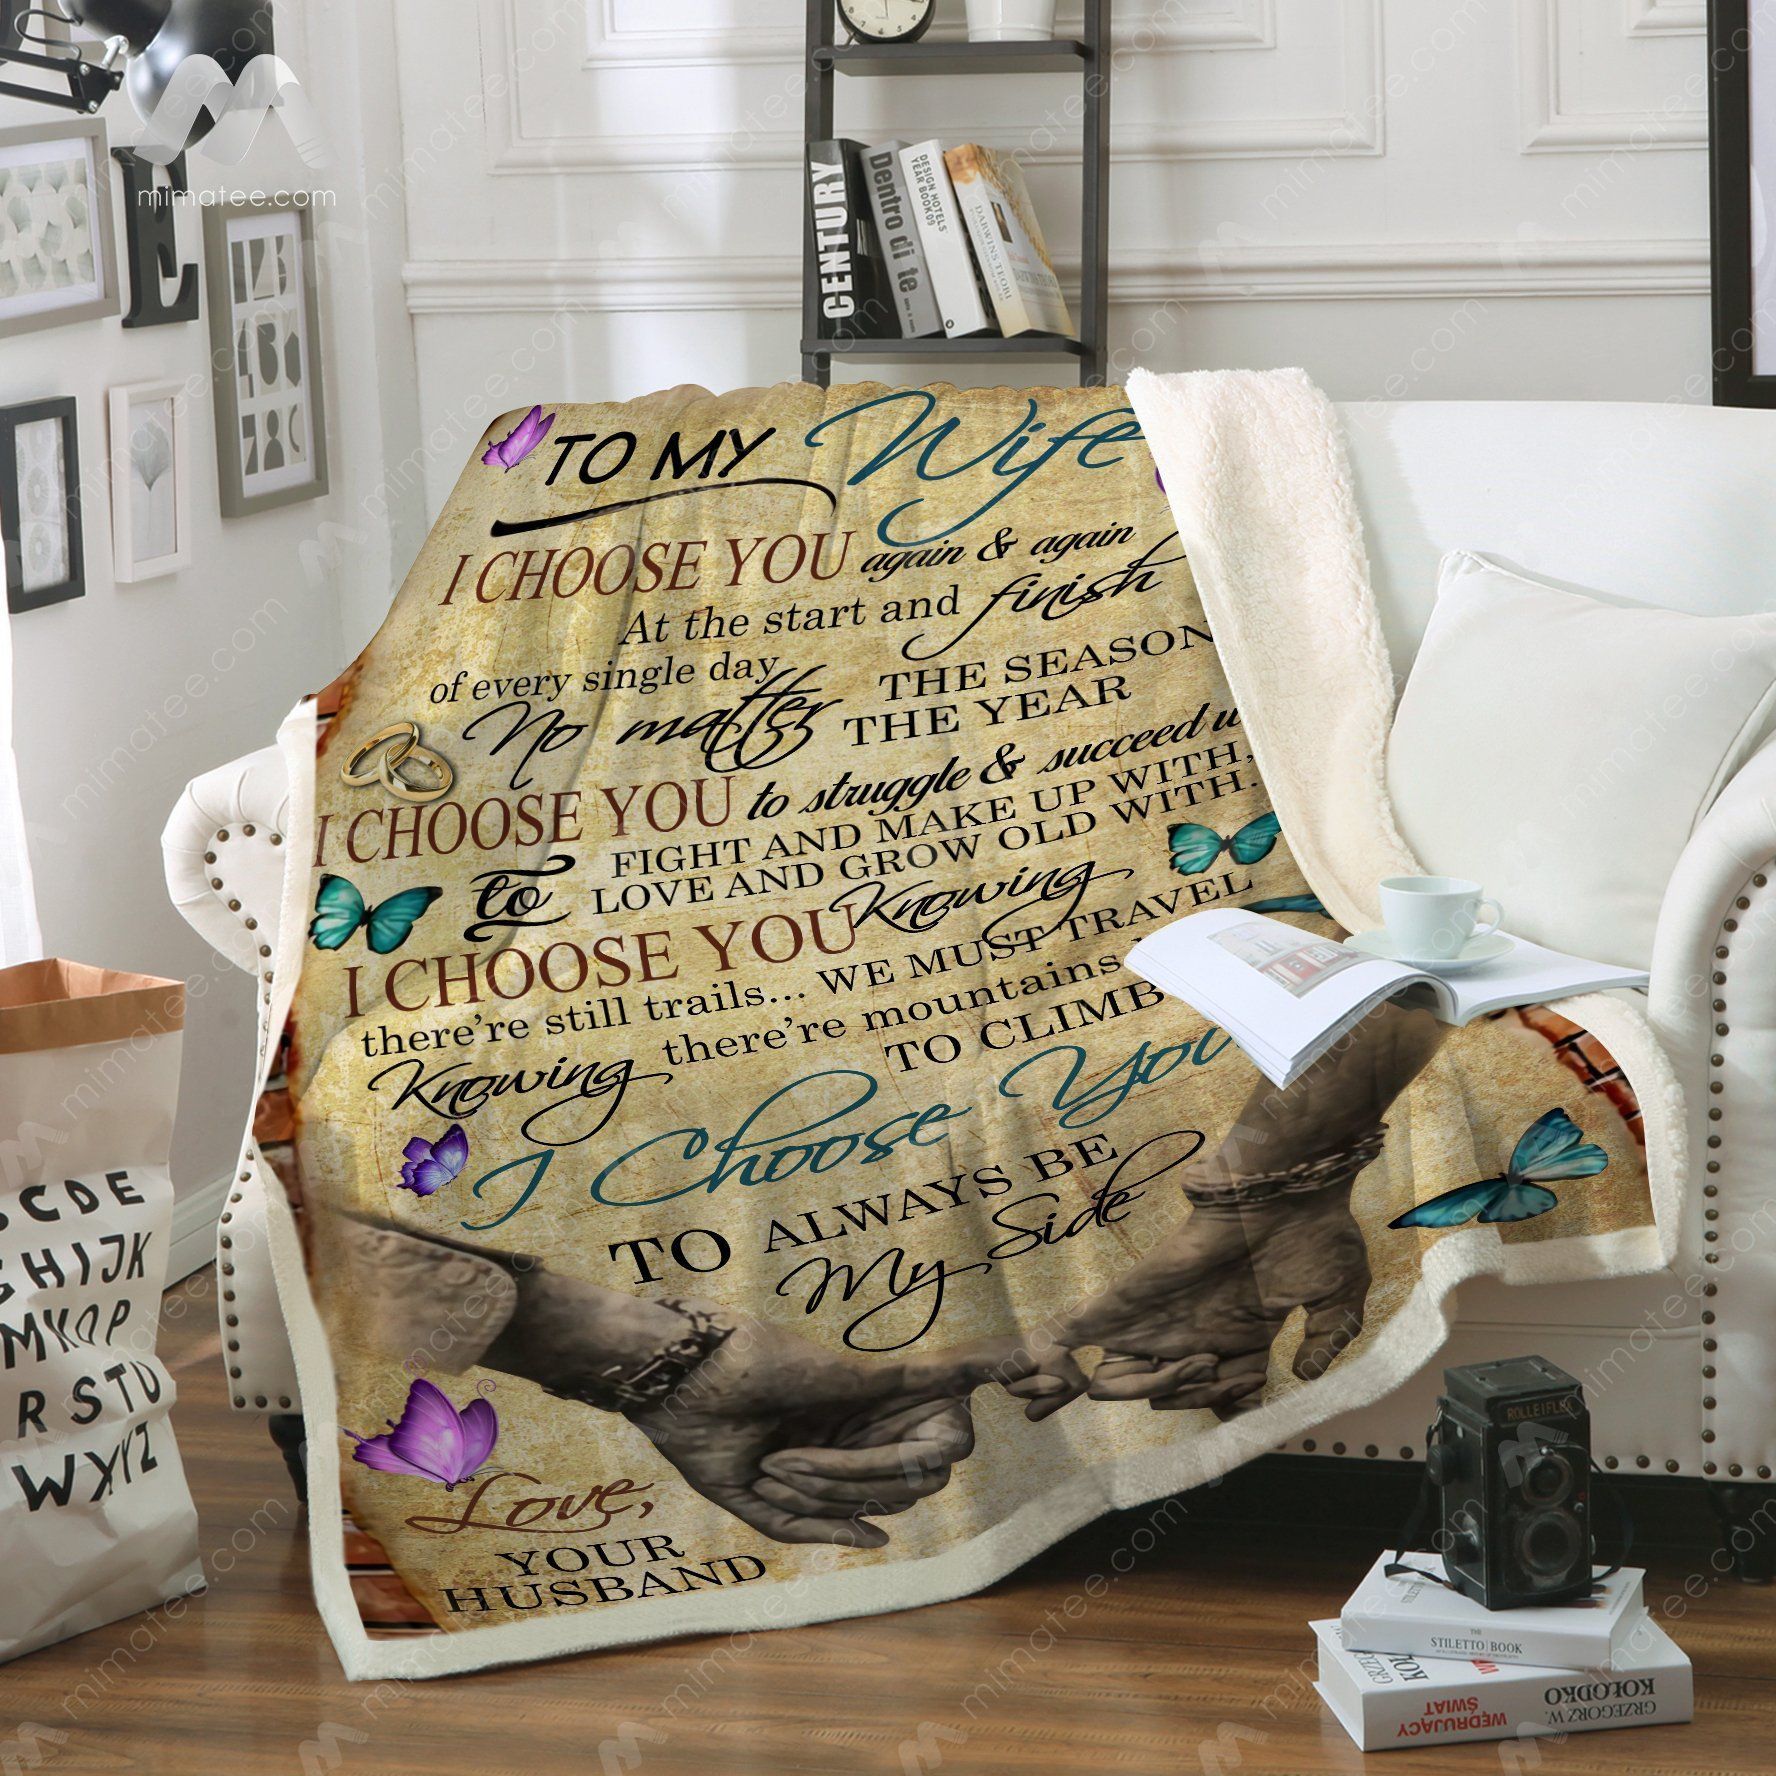 mimatee.com
CENTURY
Dentro di te
DESIGN HOTELS
YEAR BOOK 09
E
TO MY Wife
I CHOOSE YOU again & again
At the start and finish
of every single day
No matter THE SEASON
THE YEAR
I CHOOSE YOU to struggle & succeed
FIGHT AND MAKE UP WITH,
to LOVE AND GROW OLD WITH.
I CHOOSE YOU Knowing
there're still trails... WE MUST TRAVEL
Knowing there're mountains
TO CLIMB
I Choose You
TO ALWAYS BE
My Side
Love,
YOUR
HUSBAND
CDE
GHIJK
MNOP
RSTU
WXYZ
ROLLEIFLEX
THE
STILETTO BOOK
GRZEGORZ W.
KOŁODKO
WĘDRUJĄCY
ŚWIAT